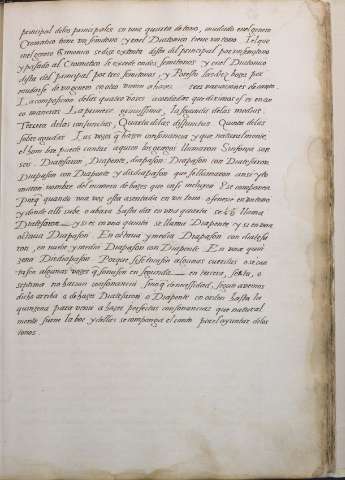 principal delos principales en una quarta de tono, mudado en el genero
Cromatico tiene un semitono y en el Diatonico tiene un tono. Y el que
en el genero Ermonico se dize extenta dista del principal por un semitono
y passado al Cromatico le excede en dos semitonos y en el Diatonico
dista del principal por tres semitonos, y Por esto las dos bozes por
mudarse de un genero en otro vienen a hazer seis variaciones de canto.
La composicion de las quatro bozes acordadas que diximos es en cinco
maneras. La primera gravissima, la segunda de las medias
Tercera de las conjuntas, Quarta de las disjuntas. Quinta de las
sobre agudas. Las bozes q hazen consonancia y que naturalmente
el hombre puede cantar a quien los griegos llamaron Sinfonie son
seis. Diatesaron, Diapente, diapason Diapason con Diatesaron,
Diapason con Diapente y disdiapason que se llamaron ansi y to
maron nombre del numero de bozes que cassi incluyen Y se comparan
Porq quando una voz esta asentada en un tono o fenece en un tono
y donde alli sube o abaxa hasta dar en una quarta se llama
Diatesaron. y si es en una quinta se llama Diapente y si en una
octava Diapason. En octava y media Diapason con diatesa
ron, en nueve y media Diapason con Diapente. En una quin
zena Disdiapason Porque si se tocasen algunas cuerdas o se can
tasen algunas bozes q fuessen en segunda en tercera, sexta, o
septima no harian consonancia sino q de necessidad, segun avemos
dicho arriba a de hazer Diatesaron, o Diapente en orden hasta la
quinzena para venir a hazer perfectas consonancias que natural
mente forme la boz, y dellas se componga el canto por el ayuntar delos
tonos.